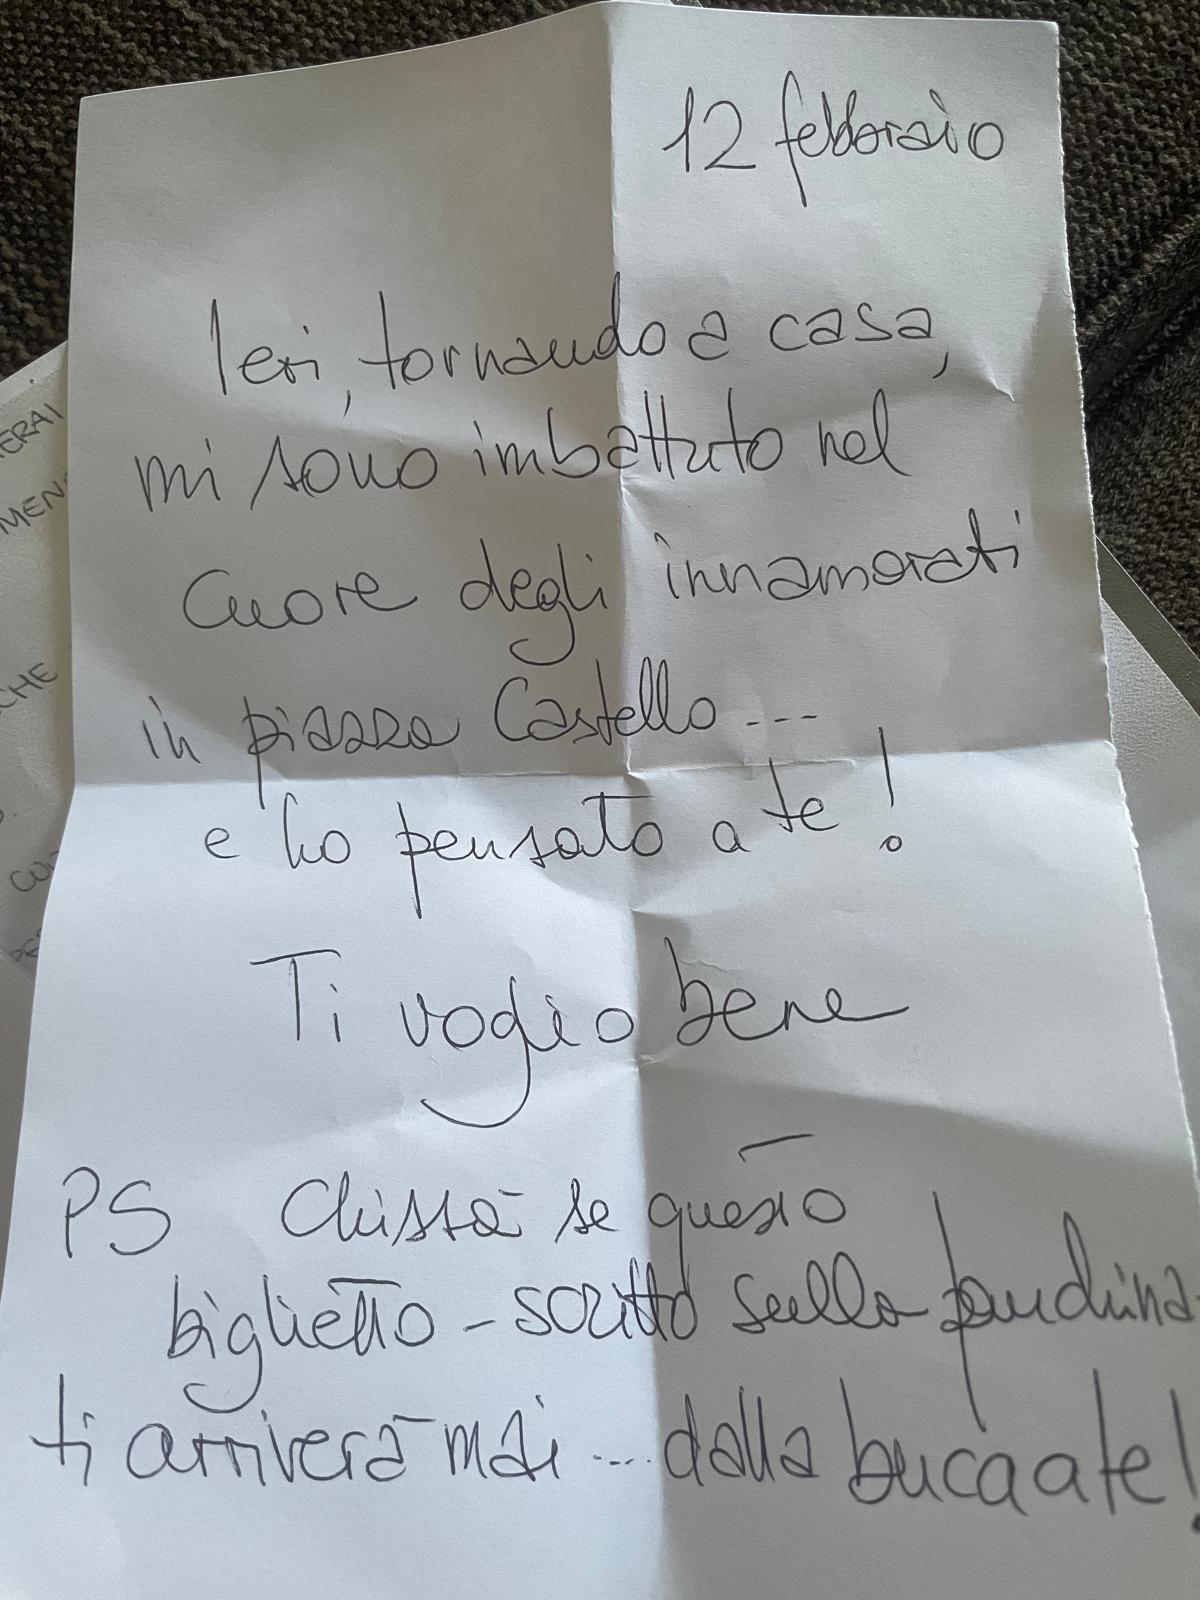 12 febbraio
Ieri, tornando a casa,
mi sono imbattuto nel
Cuore degli innamorati
in piazza Castello ---
e ho pensato a te!
Ti voglio bene
PS Chissà se questo
biglietto - scritto sulla panchina -
ti arriverà mai .... dalla buca a te!
ERAI
MEN
CHE